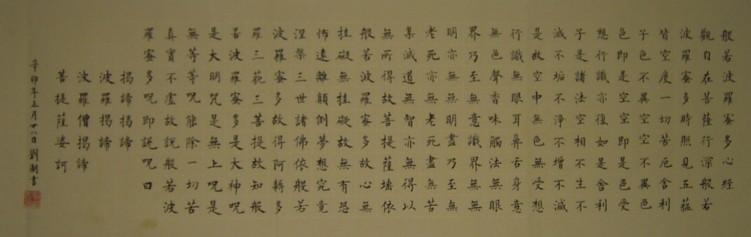 般若波羅蜜多心經
觀自在菩薩行深般若
波羅蜜多時照見五蘊
皆空度一切苦厄舍利
子色不異空空不異色
色即是空空即是色受
想行識亦復如是舍利
子是諸法空相不生不
滅不垢不淨不增不減
是故空中無色無受想
行識無眼耳鼻舌身意
無色聲香味觸法無眼
界乃至無意識界無無
明亦無無明盡乃至無
老死亦無老死盡無苦
集滅道無智亦無得以
無所得故菩提薩埵依
般若波羅蜜多故心無
挂礙無挂礙故無有恐
怖遠離顛倒夢想究竟
涅槃三世諸佛依般若
波羅蜜多故得阿耨多
羅三藐三菩提故知般
若波羅蜜多是大神呪
是大明呪是無上呪是
無等等呪能除一切苦
真實不虛故說般若波
羅蜜多呪即說呪曰
揭諦揭諦
波羅揭諦
波羅僧揭諦
菩提薩婆訶
辛卯年五月廿八日劉書